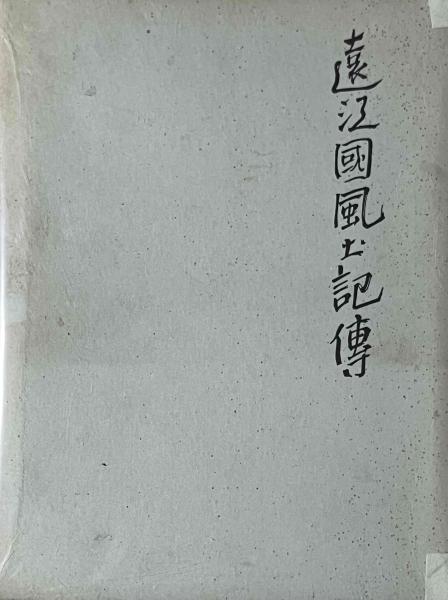 遠江國風土記傳